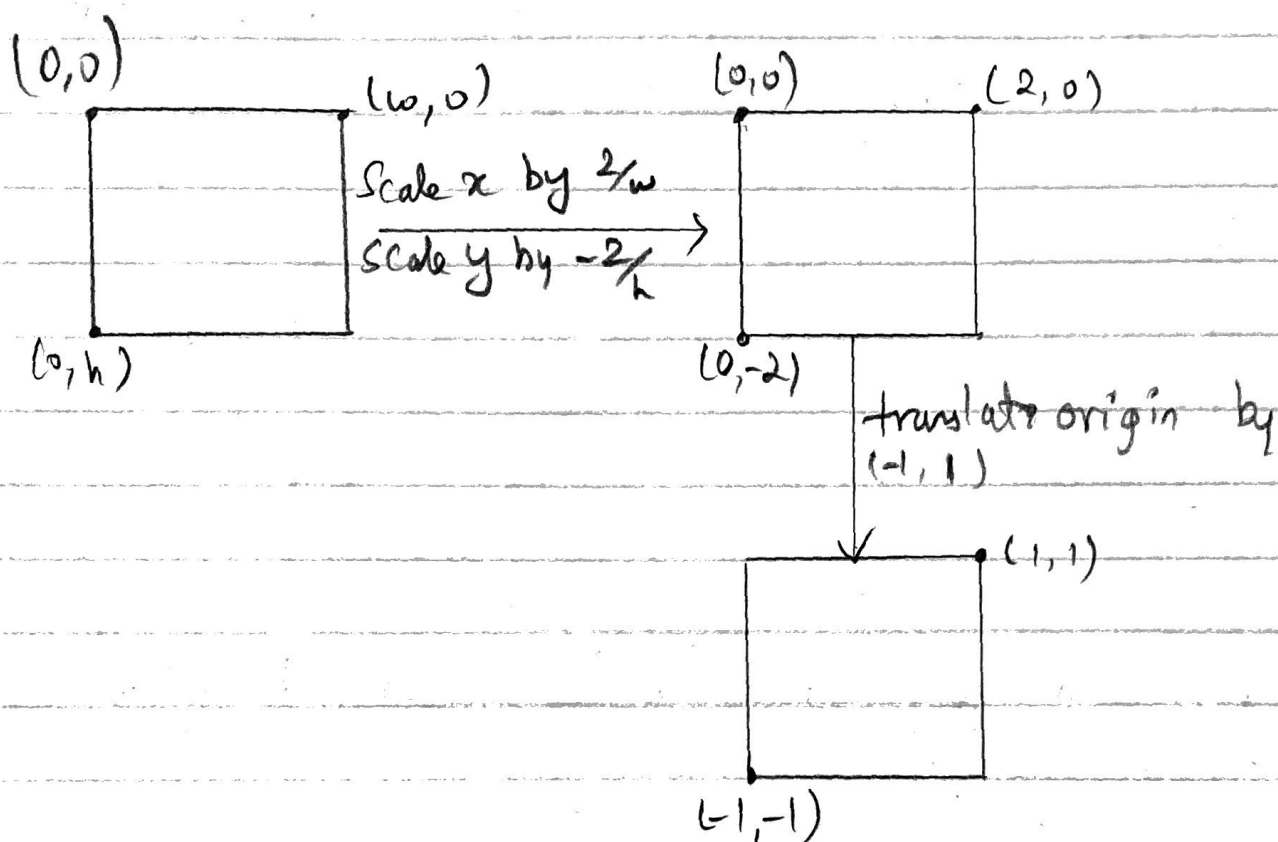 (0,0)
(w,0)
(0,0)
(2,0)
Scale x by 2/w
Scale y by -2/h
(0,h)
(0,-2)
translate origin by
(-1, 1)
(1,1)
(-1,-1)